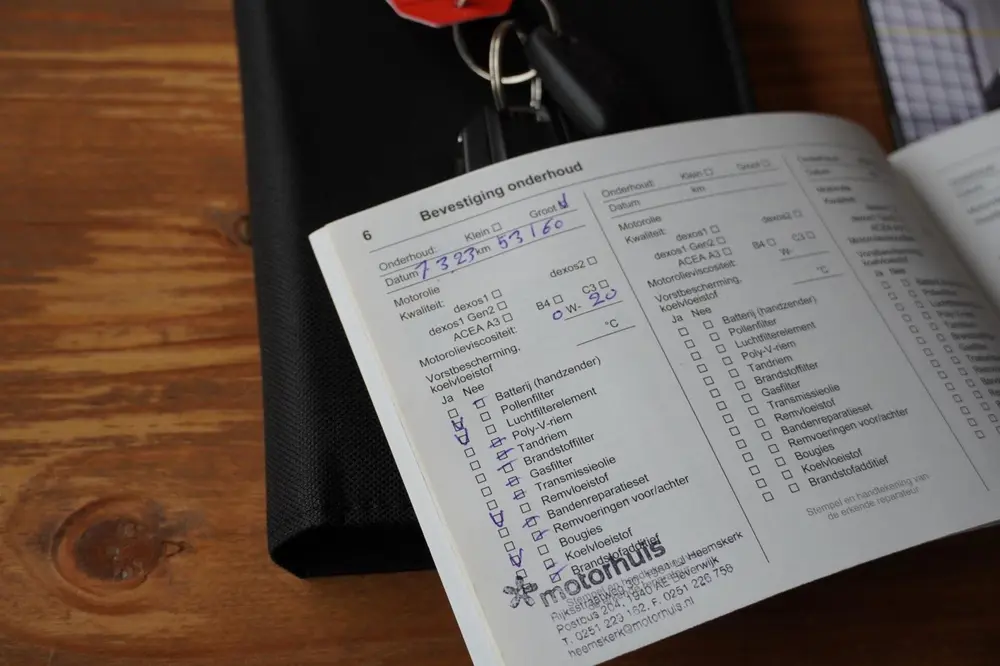 6
Bevestiging onderhoud
Onderhoud: Klein Groot
Datum 7 3.23 km 53160
Motorolie
Kwaliteit: dexos1 dexos2
dexos1 Gen2
ACEA A3 B4 C3
Motorolieviscositeit: 0 W- 20
Vorstbescherming,
koelvloeistof °C
Ja Nee
Batterij (handzender)
Pollenfilter
Luchtfilterelement
Poly-V-riem
Tandriem
Brandstoffilter
Gasfilter
Transmissieolie
Remvloeistof
Bandenreparatieset
Remvoeringen voor/achter
Bougies
Koelvloeistof
Brandstofadditief
motorhuis
Rijksstraatweg Heemskerk
Postbus 204, 1940 AE Beverwijk
T. 0251 223 162, F. 0251 226 759
heemskerk@motorhuis.nl
Onderhoud: Klein Groot
Datum km
Motorolie
Kwaliteit: dexos1 dexos2
dexos1 Gen2
ACEA A3 B4 C3
Motorolieviscositeit: W-
Vorstbescherming,
koelvloeistof °C
Ja Nee
Batterij (handzender)
Pollenfilter
Luchtfilterelement
Poly-V-riem
Tandriem
Brandstoffilter
Gasfilter
Transmissieolie
Remvloeistof
Bandenreparatieset
Remvoeringen voor/achter
Bougies
Koelvloeistof
Brandstofadditief
Stempel en handtekening van
de erkende reparateur
Datum
Motorolie
Kwaliteit:
dexos1
dexos1 Gen2
ACEA A3
Ja Nee